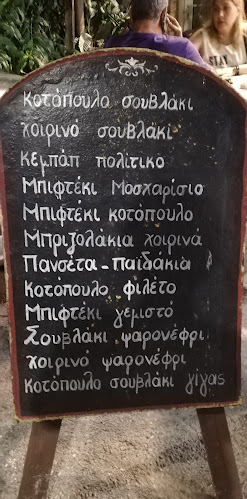 κοτόπουλο σουβλάκι
χοιρινό σουβλάκι
κεμπάπ πολίτικο
Μπιφτέκι Μοσχαρίσιο
Μπιφτέκι κοτόπουλο
Μπριζολάκια χοιρινά
Πανσέτα-παϊδάκια
κοτόπουλο φιλέτο
Μπιφτέκι γεμιστό
Σουβλάκι ψαρονέφρι
χοιρινό ψαρονέφρι
κοτόπουλο σουβλάκι γίγας